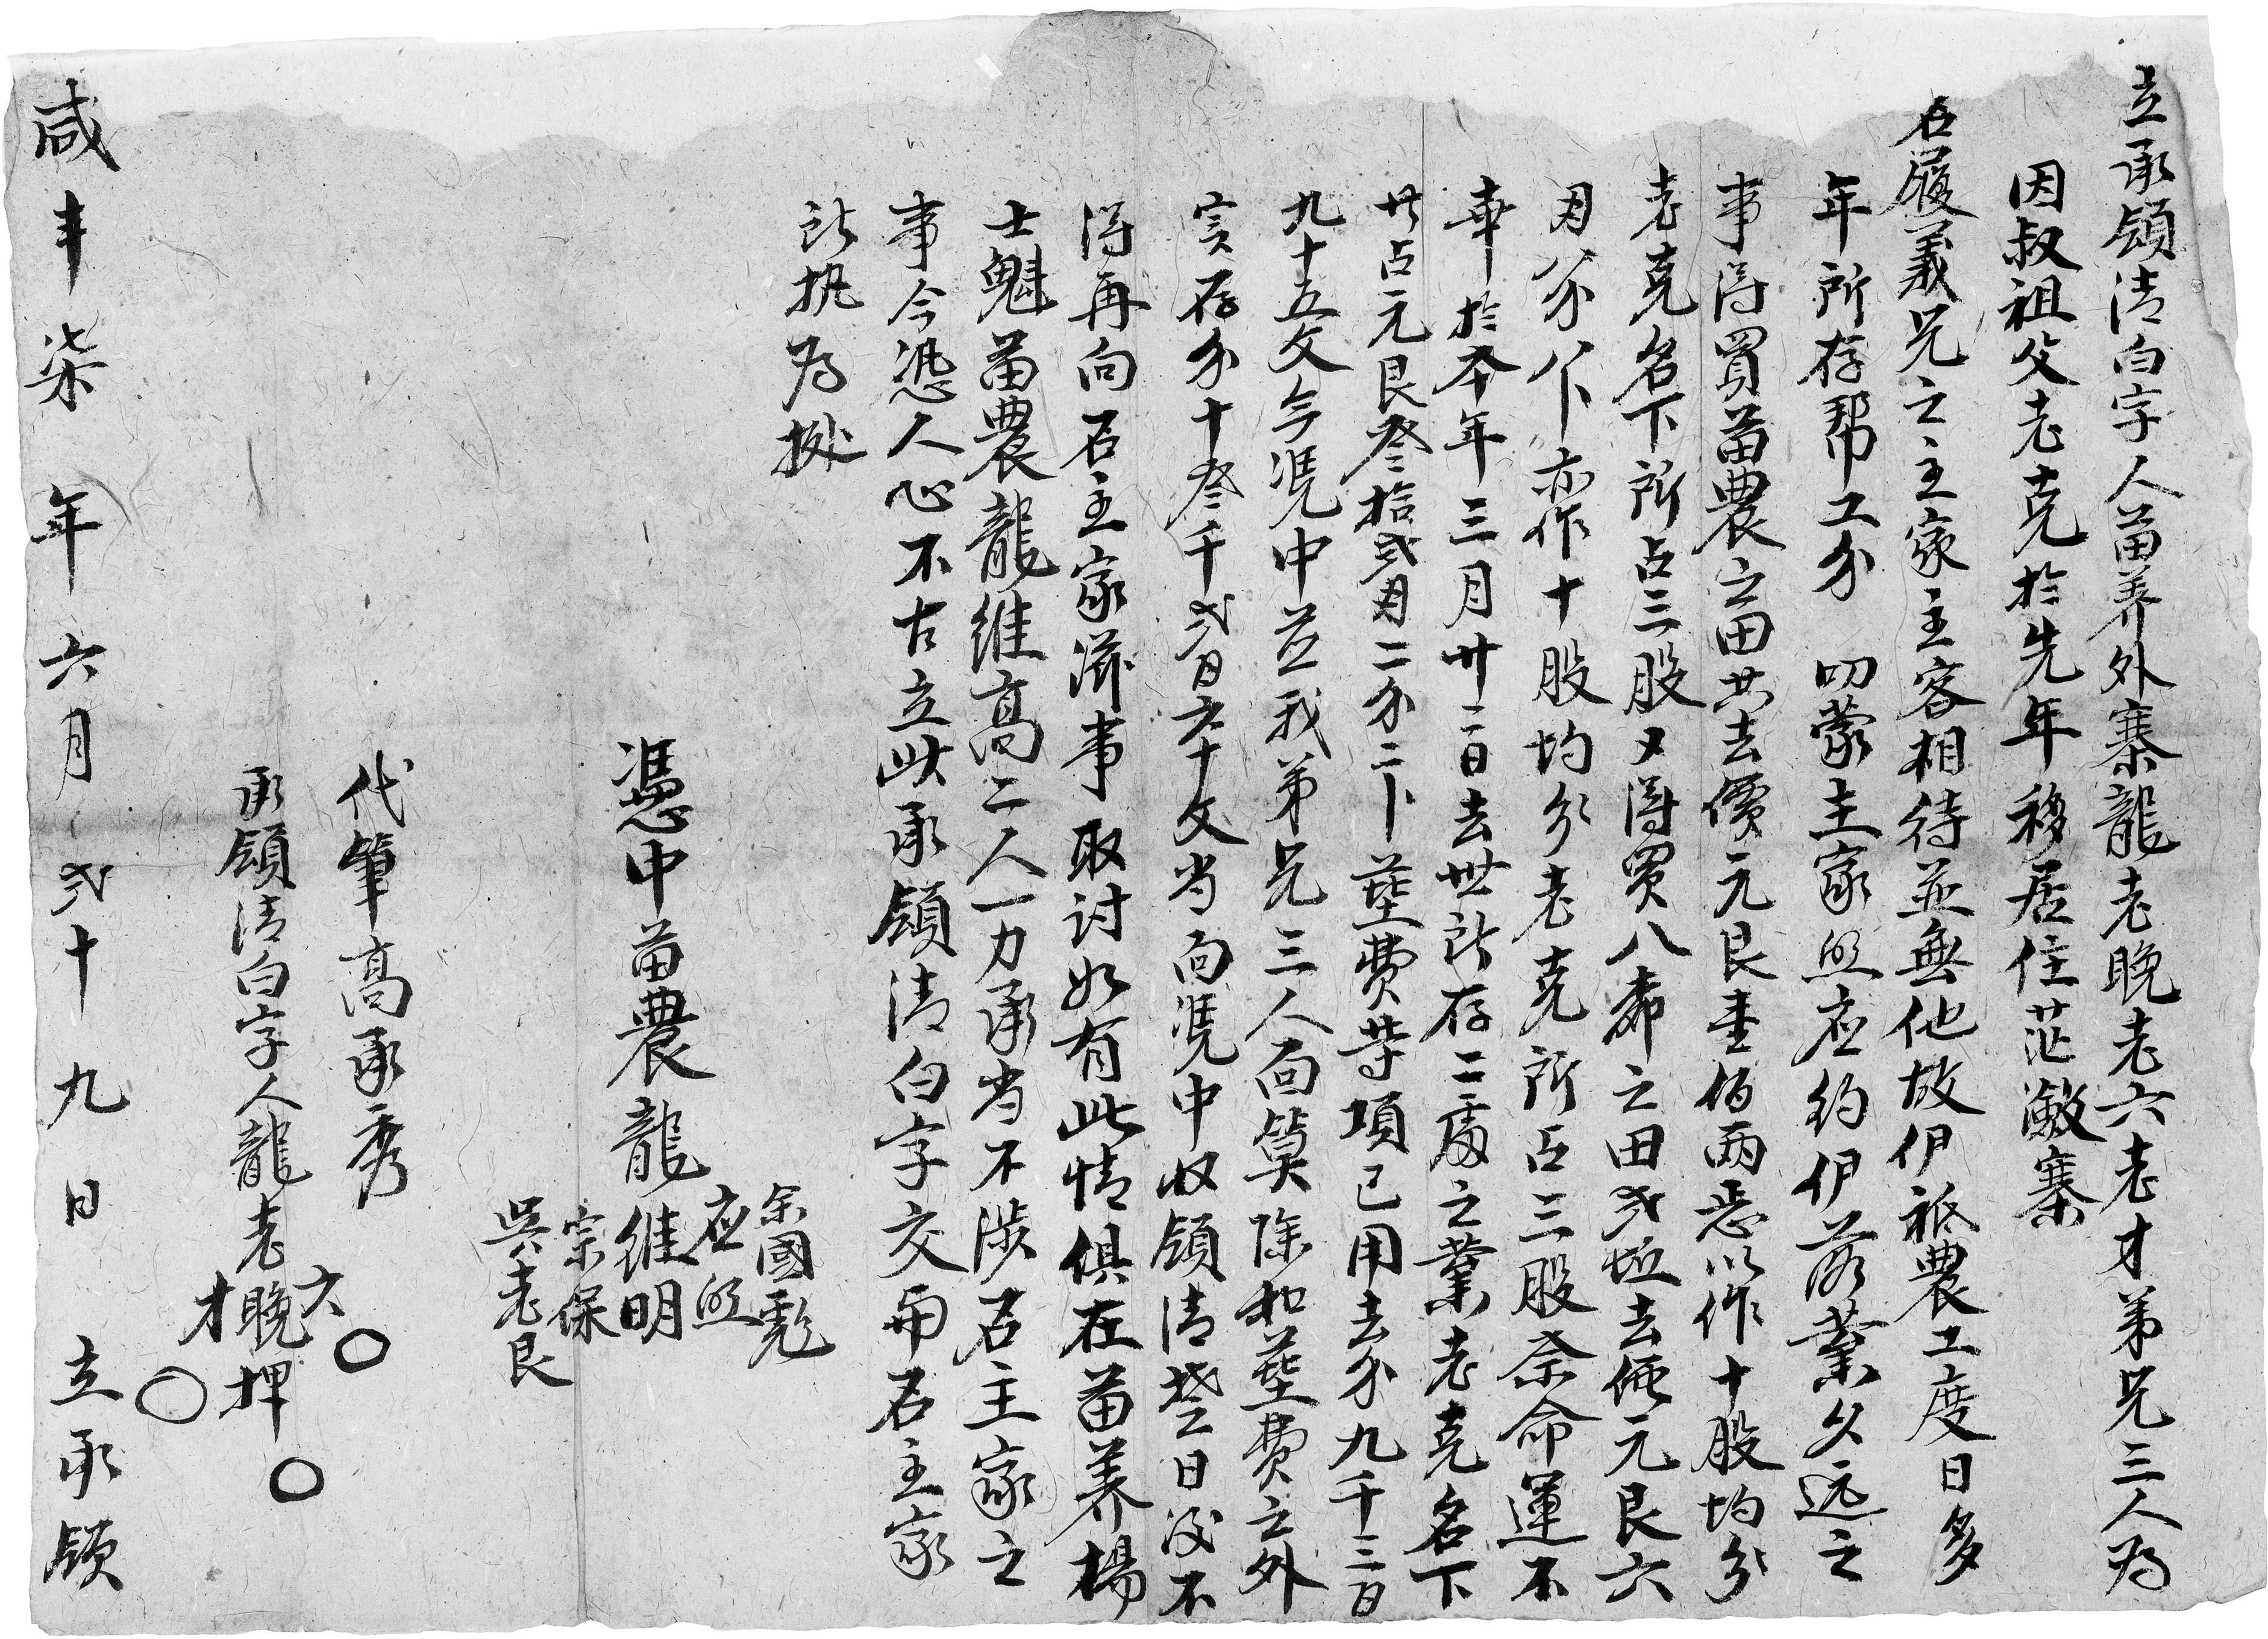 立承領清白字人苗养外寨龍老晚老六老才弟兄三人为
因叔祖父老克於先年移居住茫溦寨
石履義兄之主家主客相待並無他故伊祗農工度日多
年所存帮工分 叨蒙主家照应約伊落業久远之
事得買苗農之田共去價元艮壹佰两悉以作十股均分
老克名下所占三股又得買八希之田弍坵去価元艮六
两分亦作十股均分老克所占三股奈命運不
幸於本年三月廿二日去世所存二處之業老克名下
共占元艮叁拾弍两二分二卜葬費等項已用去分九千三百
九十五文今憑中並我弟兄三人向算除和葬費之外
实存分十叁千弍百六十文当向憑中收領清楚日後不
得再向石主家滋事取討如有此情俱在苗养楊
士魁苗農龍維高二人一力承当不涉石主家之
事今恐人心不古立此承領清白字交与石主家
所执为拠
余國彪
应照
憑中苗農龍維明
宗保
吳老艮
代筆高承秀
六
承領清白字人龍老晚押
才
咸丰柒年六月弍十九日立承領